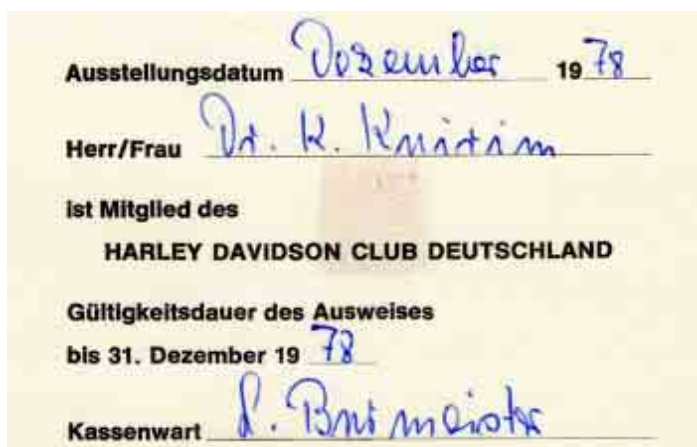 Ausstellungsdatum Dezember 1978
Herr/Frau Dr. K. Knirim
ist Mitglied des
HARLEY DAVIDSON CLUB DEUTSCHLAND
Gültigkeitsdauer des Ausweises
bis 31. Dezember 1978
Kassenwart L. Burmeister